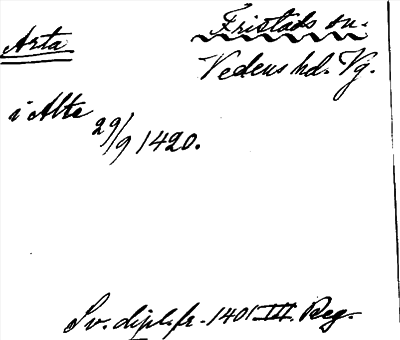 Arta
Fristads sn.
Vedens hd. Vg.
i Alte
29/9 1420.
Sv. dipl. fr. 1401 III. Reg.